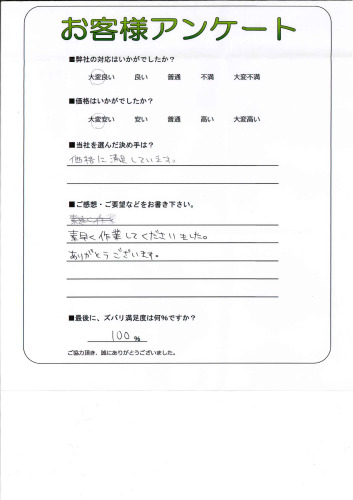 お客様アンケート
■弊社の対応はいかがでしたか？
大変良い 良い 普通 不満 大変不満
■価格はいかがでしたか？
大変安い 安い 普通 高い 大変高い
■当社を選んだ決め手は？
価格に満足しています。
■ご感想・ご要望などをお書き下さい。
素早く作業してくださいました。
ありがとうございます。
■最後に、ズバリ満足度は何％ですか？
100 %
ご協力頂き、誠にありがとうございました。